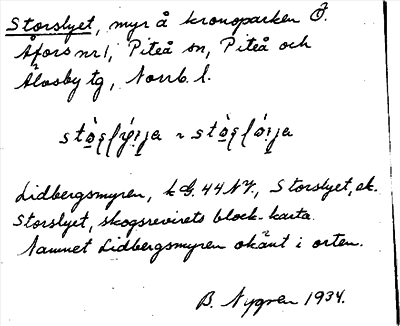 Storslyet, myr å kronoparken Ö.
Åfors nr 1, Piteå sn, Piteå och
Älvsby tg, Norrb. l.
Lidbergsmyren, k G. 44 NV, Storslyet, ek.
Storslyet, skogsrevirets block-karta.
Namnet Lidbergsmyren okänt i orten.
B. Nygren 1934.